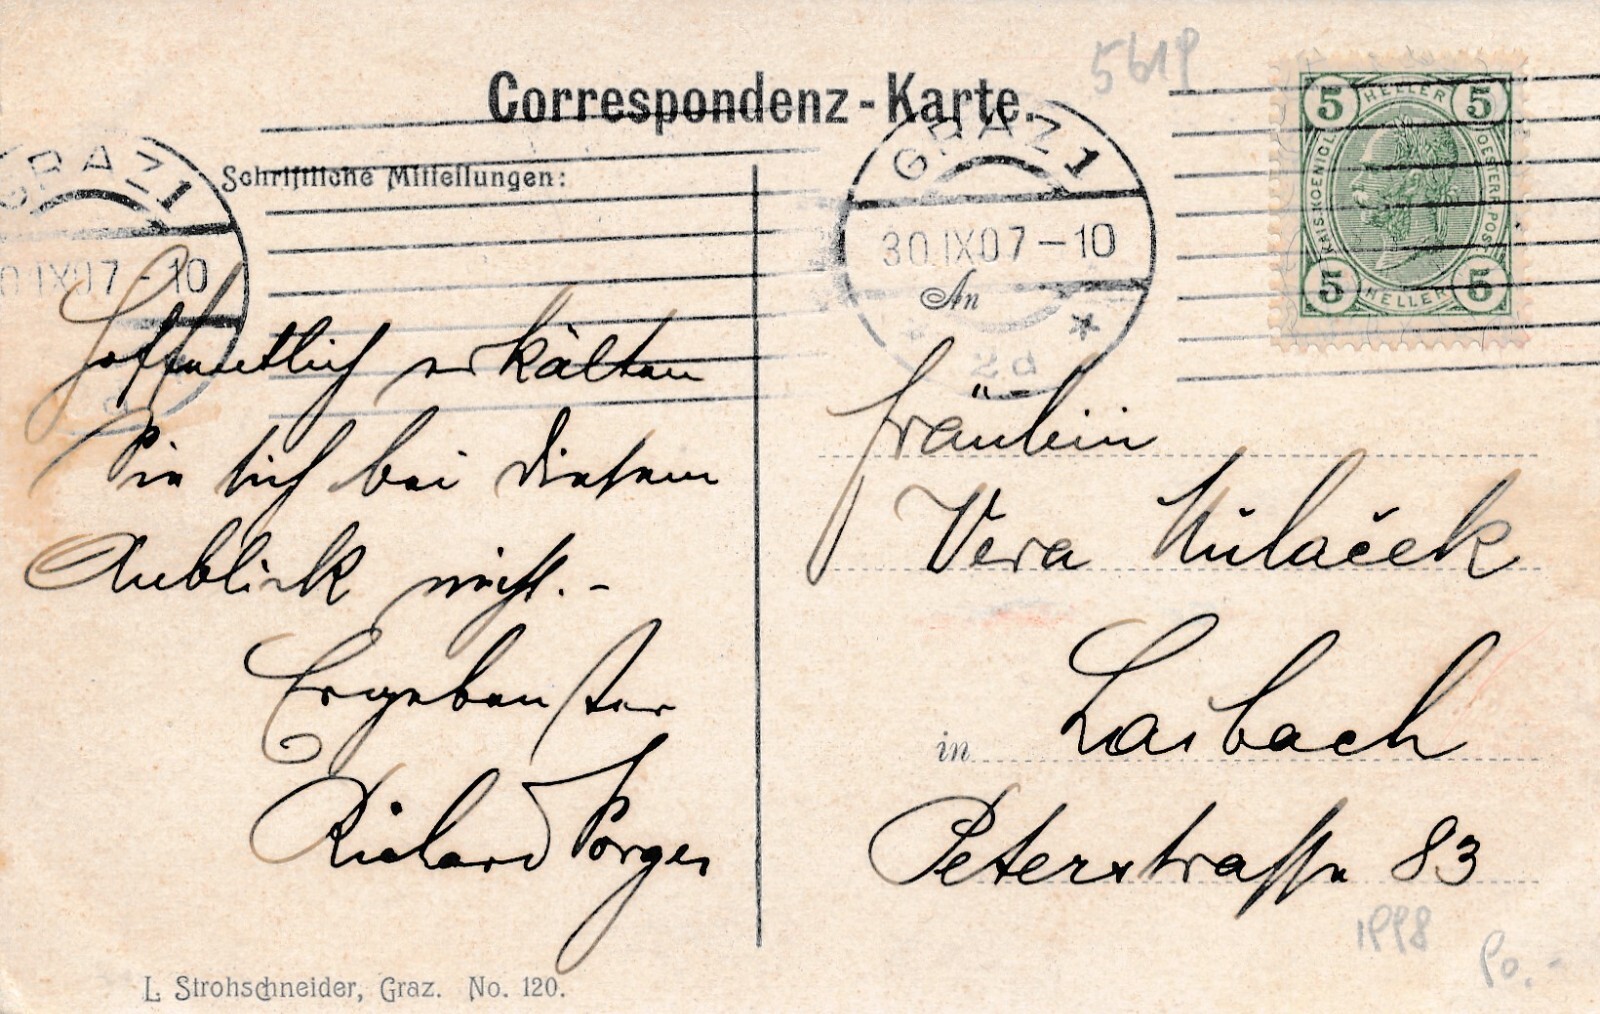 Correspondenz-Karte.
5619
Schriftliche Mitteilungen:
GRAZ 1
30.IX.07-10
GRAZ 1
30.IX.07-10
2d
5 HELLER 5
KAIS. KOENIGL.
OESTERR. POST
5 HELLER 5
An
Hoffentlich erkälten
Sie sich bei diesem
Anblick nicht.-
Ergebenster
Richard Porges
Fräulein
Vera
in Laibach
Peterstrasse 83
1998
Po.-
L. Strohschneider, Graz. No. 120.